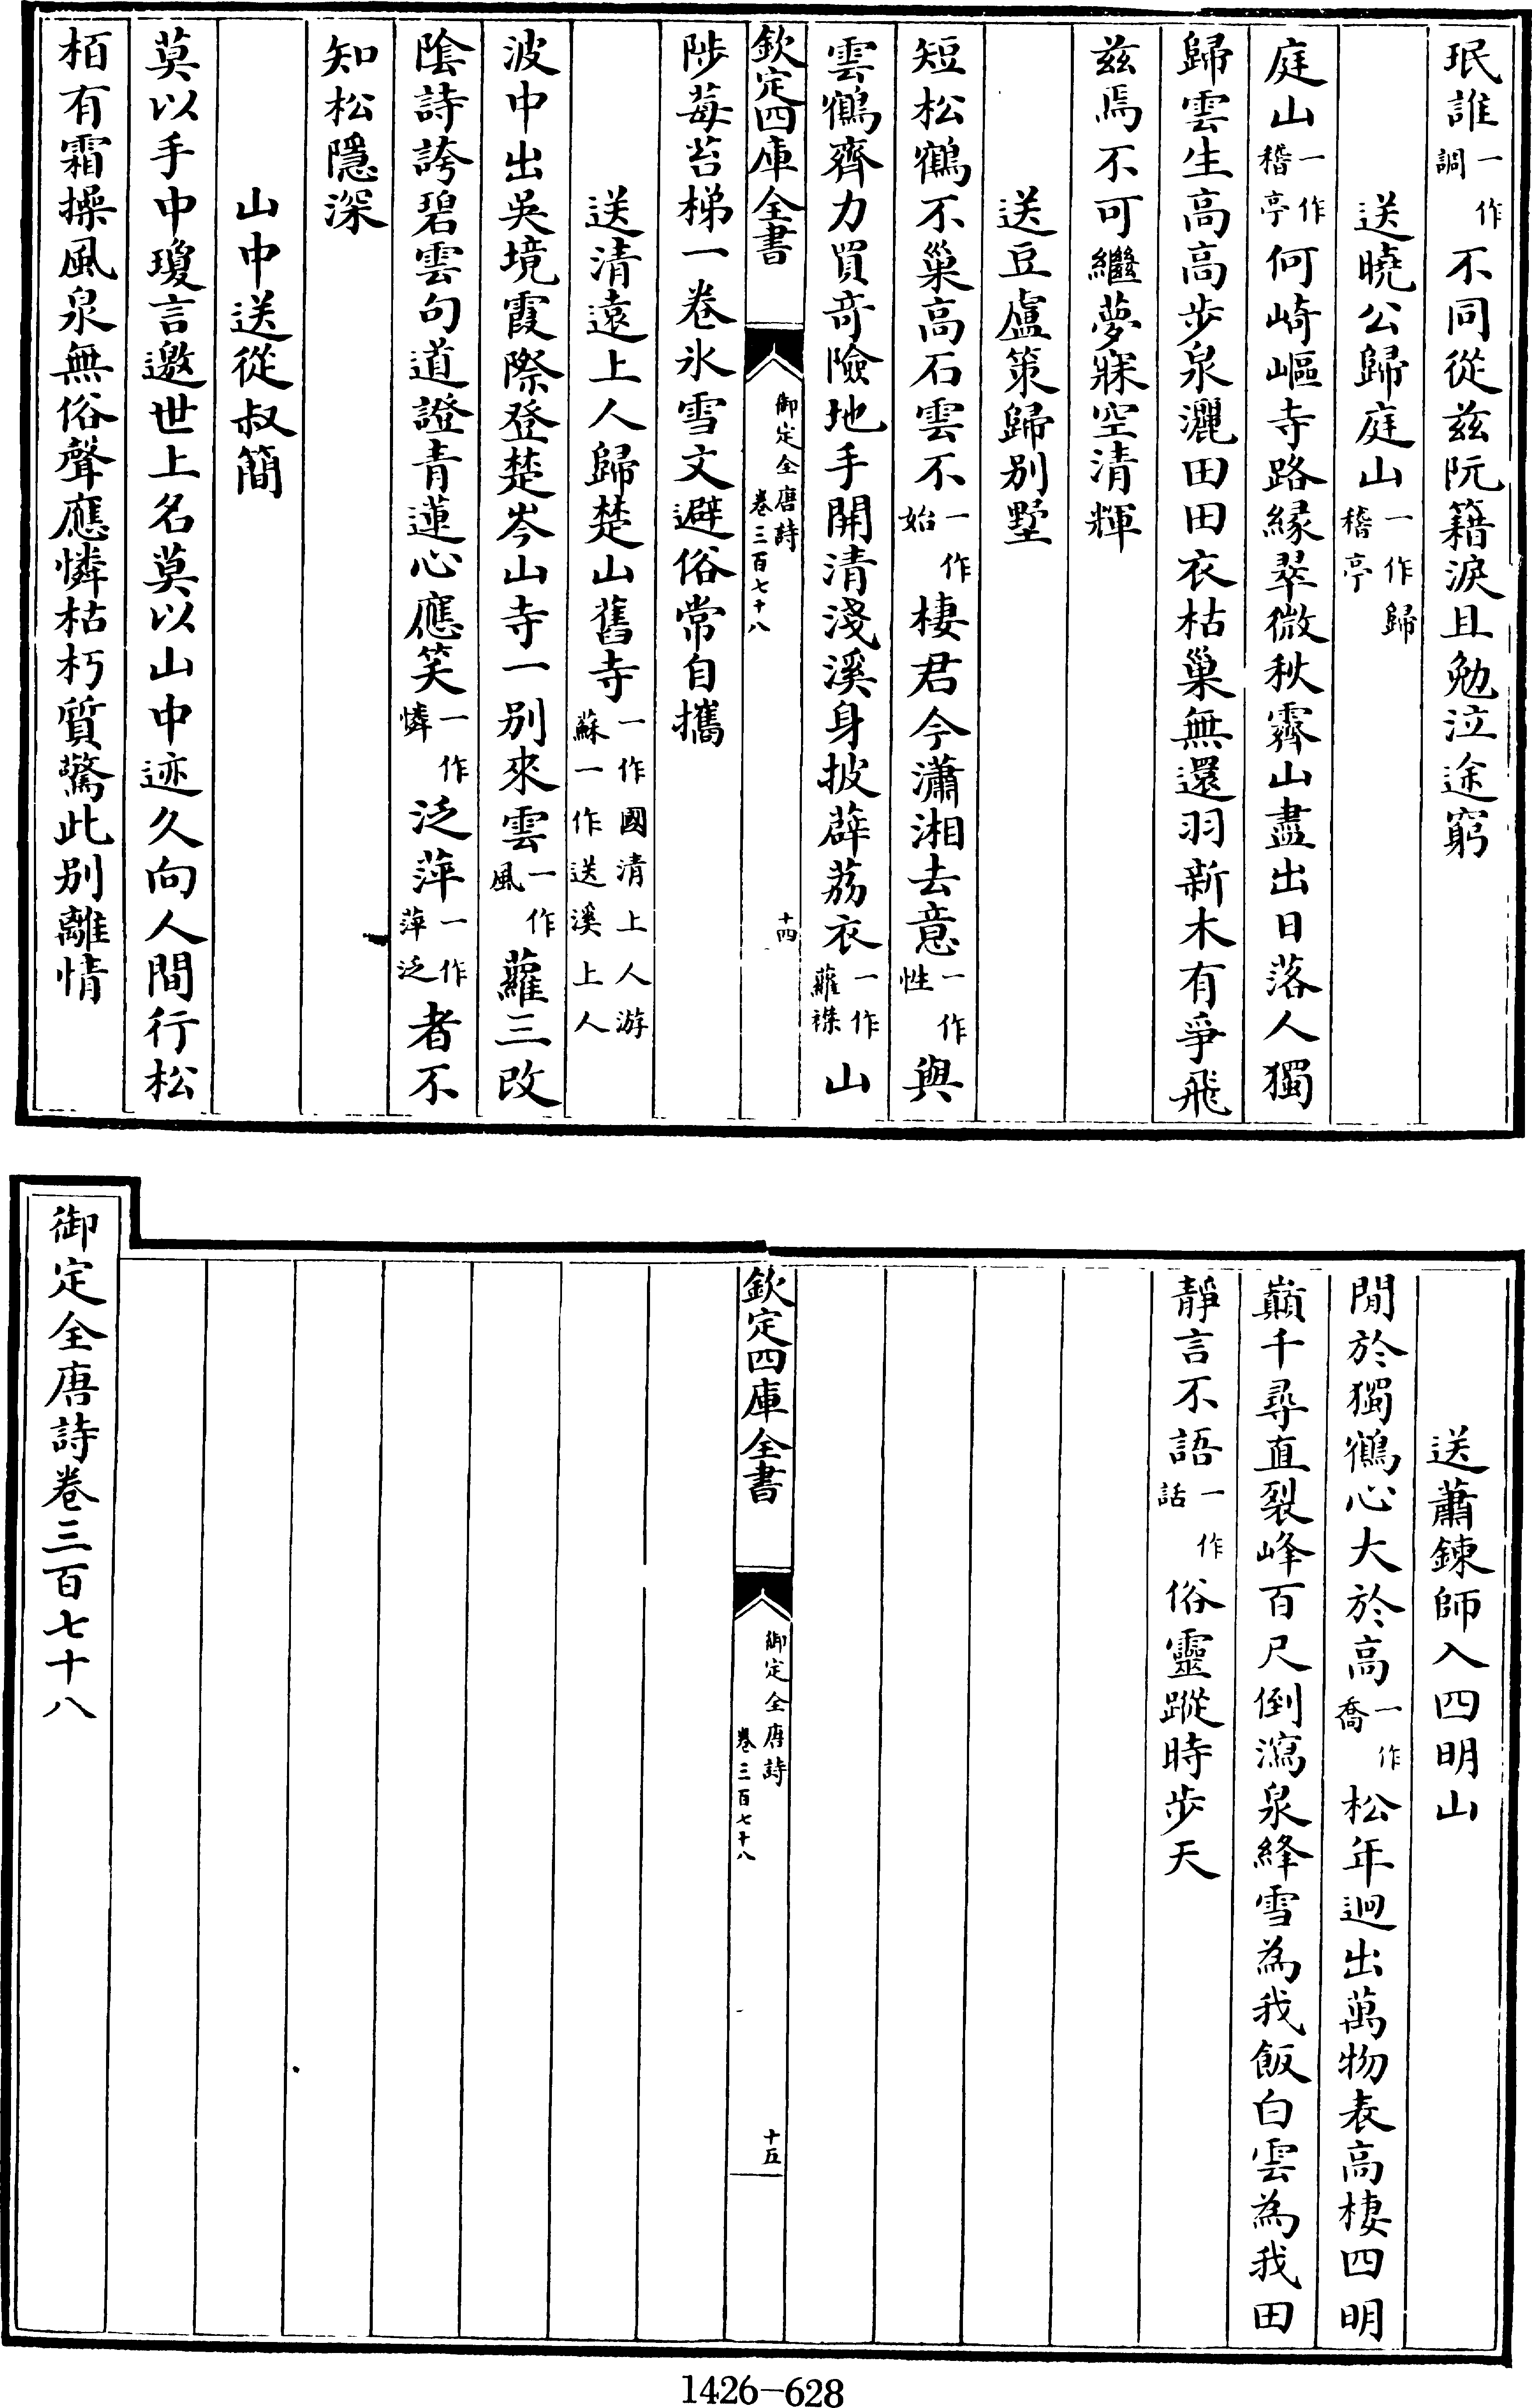 珉誰一作調不同從兹阮籍淚且勉泣途窮
送曉公歸庭山一作歸稽亭
庭山一作稽亭何崎嶇寺路緣翠微秋霽山盡出日落人獨
歸雲生高高步泉灑田田衣枯巢無還羽新木有爭飛
兹焉不可繼夢寐空清輝
送豆盧策歸别墅
短松鶴不巢高石雲不一作始棲君今瀟湘去意一作性與
雲鶴齊力買竒險地手開清淺溪身披薜荔衣一作蘿襟山
欽定四庫全書
御定全唐詩
卷三百七十八
十四
陟莓苔梯一卷氷雪文避俗常自攜
送清遠上人歸楚山舊寺一作國清上人游蘇一作送溪上人
波中出吳境霞際登楚岑山寺一别來雲一作風蘿三改
陰詩誇碧雲句道證青蓮心應笑一作憐泛萍一作萍泛者不
知松隱深
山中送從叔簡
莫以手中瓊言邀世上名莫以山中迹久向人間行松
栢有霜操風泉無俗聲應憐枯朽質驚此别離情
送蕭鍊師入四明山
閒於獨鶴心大於高一作喬松年迥出萬物表高棲四明
巔千尋直裂峰百尺倒瀉泉絳雪為我飯白雲為我田
靜言不語一作話俗靈蹤時步天
欽定四庫全書
御定全唐詩
卷三百七十八
十五
御定全唐詩卷三百七十八
1426-628